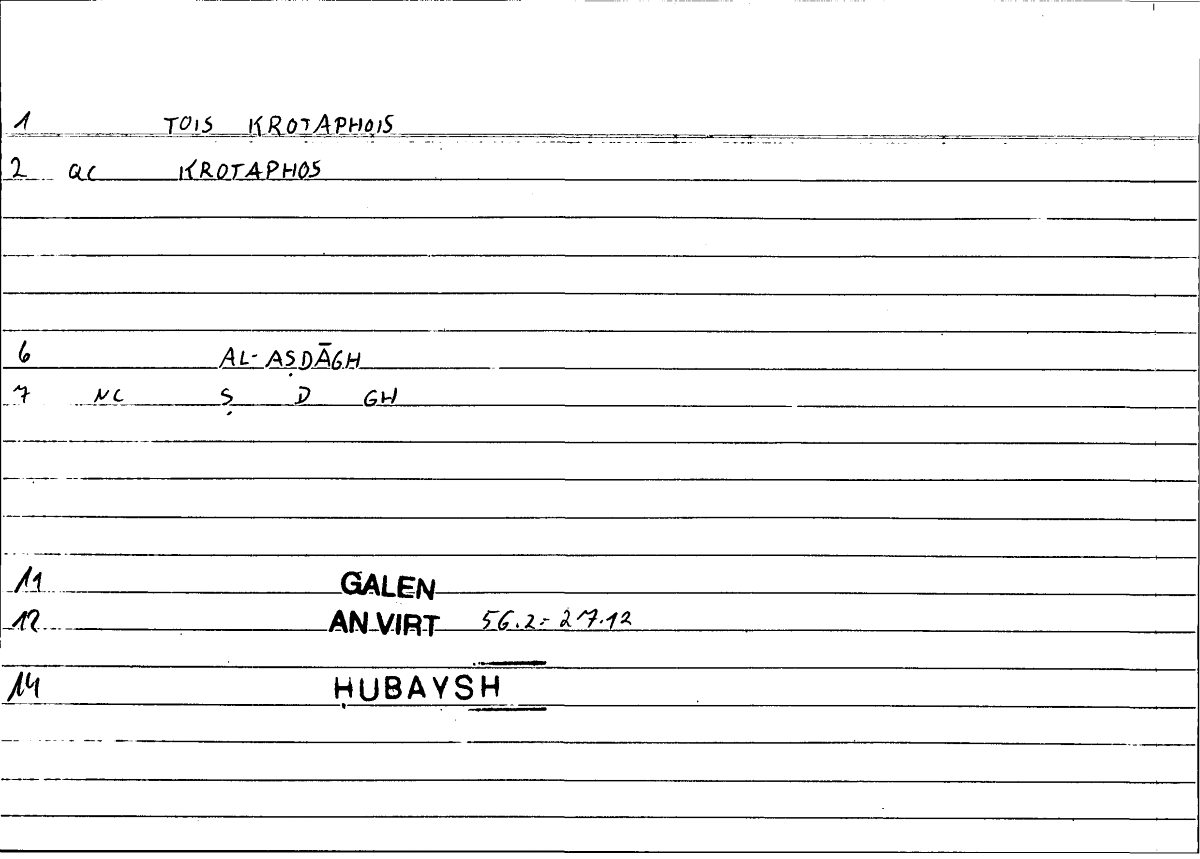 1 TOIS KROTAPHOIS
2 QC KROTAPHOS
6 AL-AṢDĀGH
7 NC Ṣ D GH
11 GALEN
12 AN VIRT 56.2=27.12
14 ḤUBAYSH